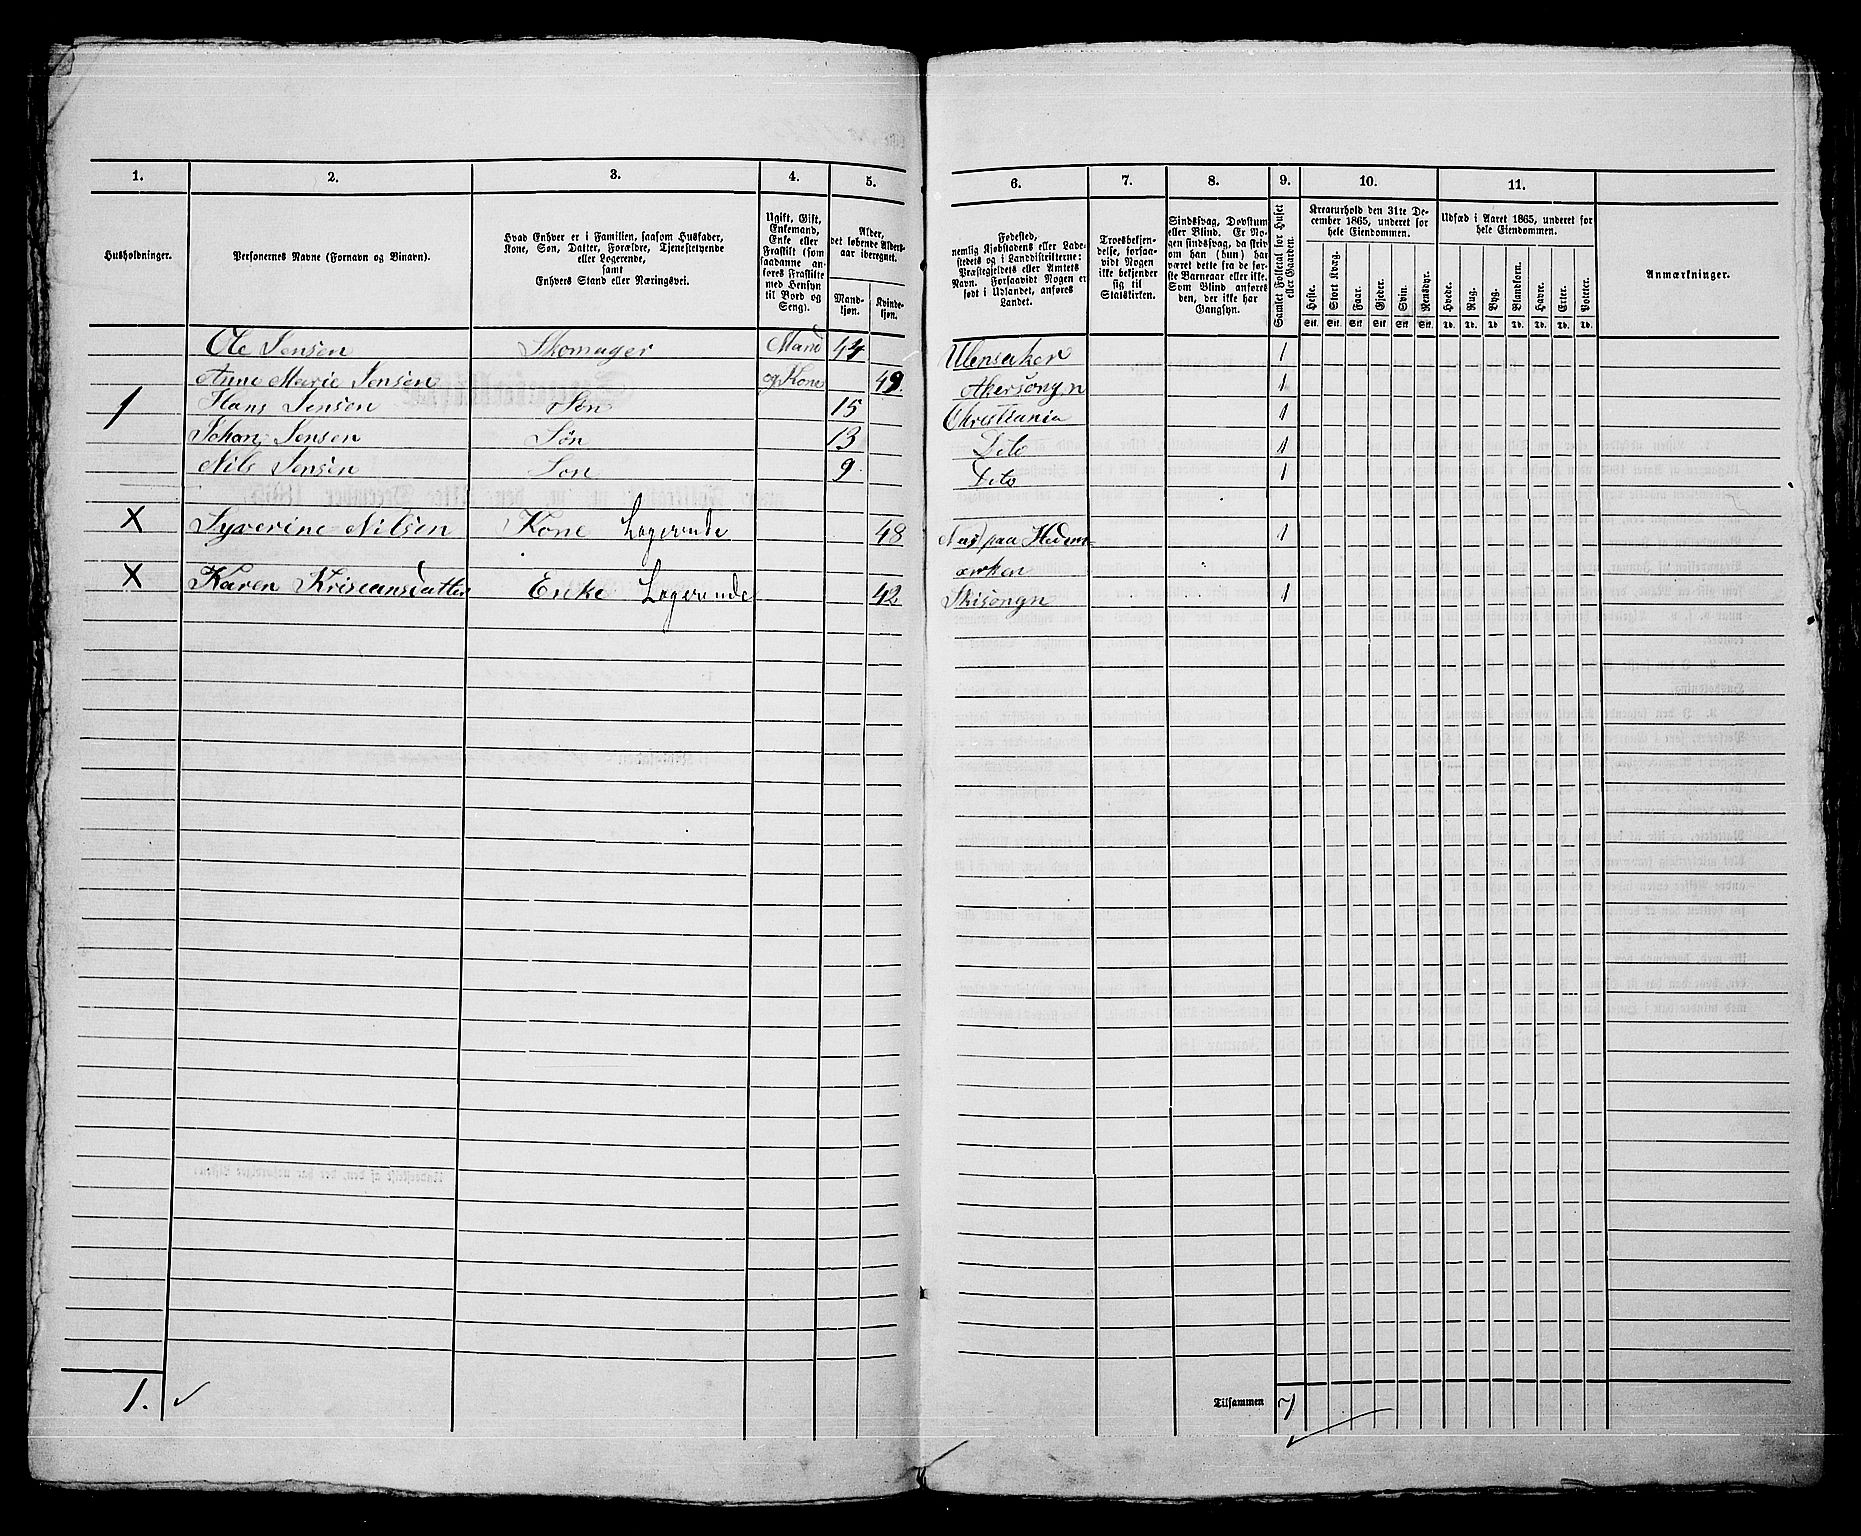 1. 2. 3. 4. 5. 6. 7. 8. 9. 10. 11.
Husholdninger.
Personernes Navne (Fornavn og Binavn).
Hvad Enhver er i Familien, saasom Husfader,
Kone, Søn, Datter, Forældre, Tjenestetyende
eller Logerende,
samt
Enhvers Stand eller Næringsvei.
Ugift, Gift,
Enkemand,
Enke eller
Fraskilt (som
saadanne an-
føres Fraskilte
med Hensyn
til Bord og
Seng).
Alder,
det løbende Alders-
aar iberegnet.
Mand-
kjøn.
Kvinde-
kjøn.
Fødested,
nemlig Kjøbstadens eller Lade-
stedets og i Landdistrikterne:
Præstegjeldets eller Amtets
Navn. Forsaavidt Nogen er
født i Udlandet, anføres
Landet.
Troesbekjen-
delse, forsaa-
vidt Nogen
ikke bekjender
sig til
Statskirken.
Sindssvag, Døvstum
eller Blind. Er No-
gen sindssvag, da skriv
om han (hun) har
været dette fra de før-
ste Barneaar eller ikke.
Som Blind anføres
den, der ikke har
Gangsyn.
Samlet Folketal for Huset
eller Gaarden.
Kreaturhold den 31te De-
cember 1865, underet for
hele Eiendommen.
Heste. Stort Kvæg. Faar. Gjeder. Svin. Rensdyr.
Stk. Stk. Stk. Stk. Stk. Stk.
Udsæd i Aaret 1865, underet for
hele Eiendommen.
Hvede. Rug. Byg. Blandkorn. Havre. Erter. Poteter.
Td. Td. Td. Td. Td. Td. Td.
Anmærkninger.
Ole Jensen Skomager Mand 44 Ulensaker 1
Anne Marie Jensen og Kone 49. Akersongn 1
1 Hans Jensen Søn 15 Christiania 1
Johan Jensen Søn 13 Dito 1
Nils Jensen Søn 9. Dito 1
X Syverine Nilsen Kone Logerende 48 Næs paa Hedem- 1
arken
X Karen Kriseansdatter Enke Logerende 42 Skisongn 1
1.
Tilsammen 7